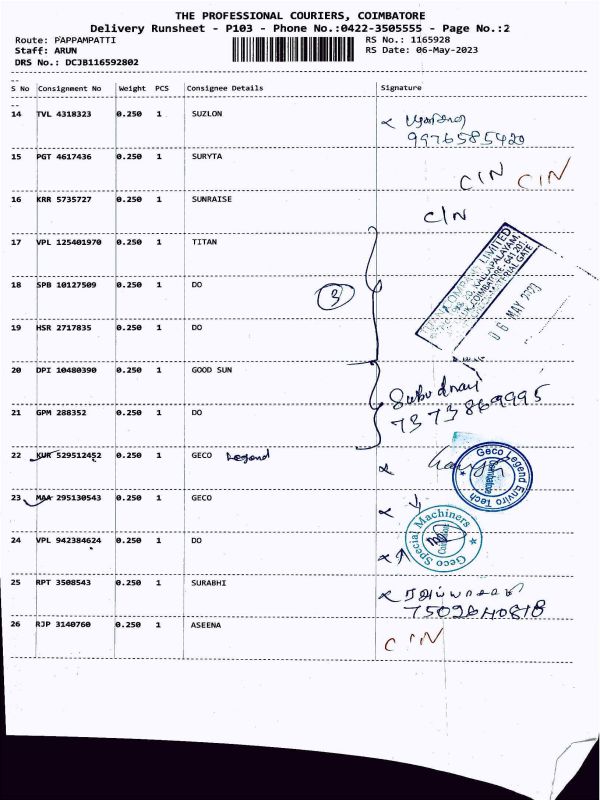 THE PROFESSIONAL COURIERS, COIMBATORE
Delivery Runsheet - P103 - Phone No.:0422-3505555 - Page No.:2
Route: PAPPAMPATTI RS No.: 1165928
Staff: ARUN RS Date: 06-May-2023
DRS No.: DCJB116592802
S No Consignment No Weight PCS Consignee Details Signature
14 TVL 4318323 0.250 1 SUZLON
9976585420
15 PGT 4617436 0.250 1 SURYTA
CIN CIN
16 KRR 5735727 0.250 1 SUNRAISE
CIN
17 VPL 125401970 0.250 1 TITAN
TITAN COMPANY LIMITED
06 MAY 2023
18 SPB 10127509 0.250 1 DO
3
19 HSR 2717835 0.250 1 DO
20 DPI 10480390 0.250 1 GOOD SUN
7373869995
21 GPM 288352 0.250 1 DO
22 KUR 529512452 0.250 1 GECO Legend
Geco Legend Enviro Tech
23 MAA 295130543 0.250 1 GECO
Geco Special Machiners
24 VPL 942384624 0.250 1 DO
25 RPT 3508543 0.250 1 SURABHI
7502640818
26 RJP 3140760 0.250 1 ASEENA
CIN